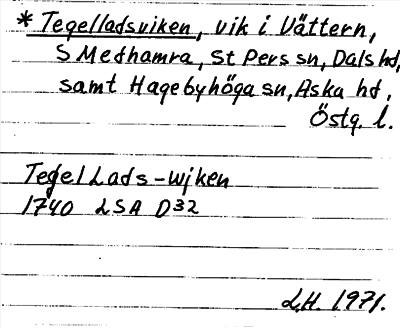 * Tegelladsviken, vik i Vättern,
S Medhamra, St Pers sn, Dals hd,
samt Hagebyhöga sn, Aska hd,
Östg. l.
Tegel Lads-wjken
1740 LSA D32
L.H. 1971.